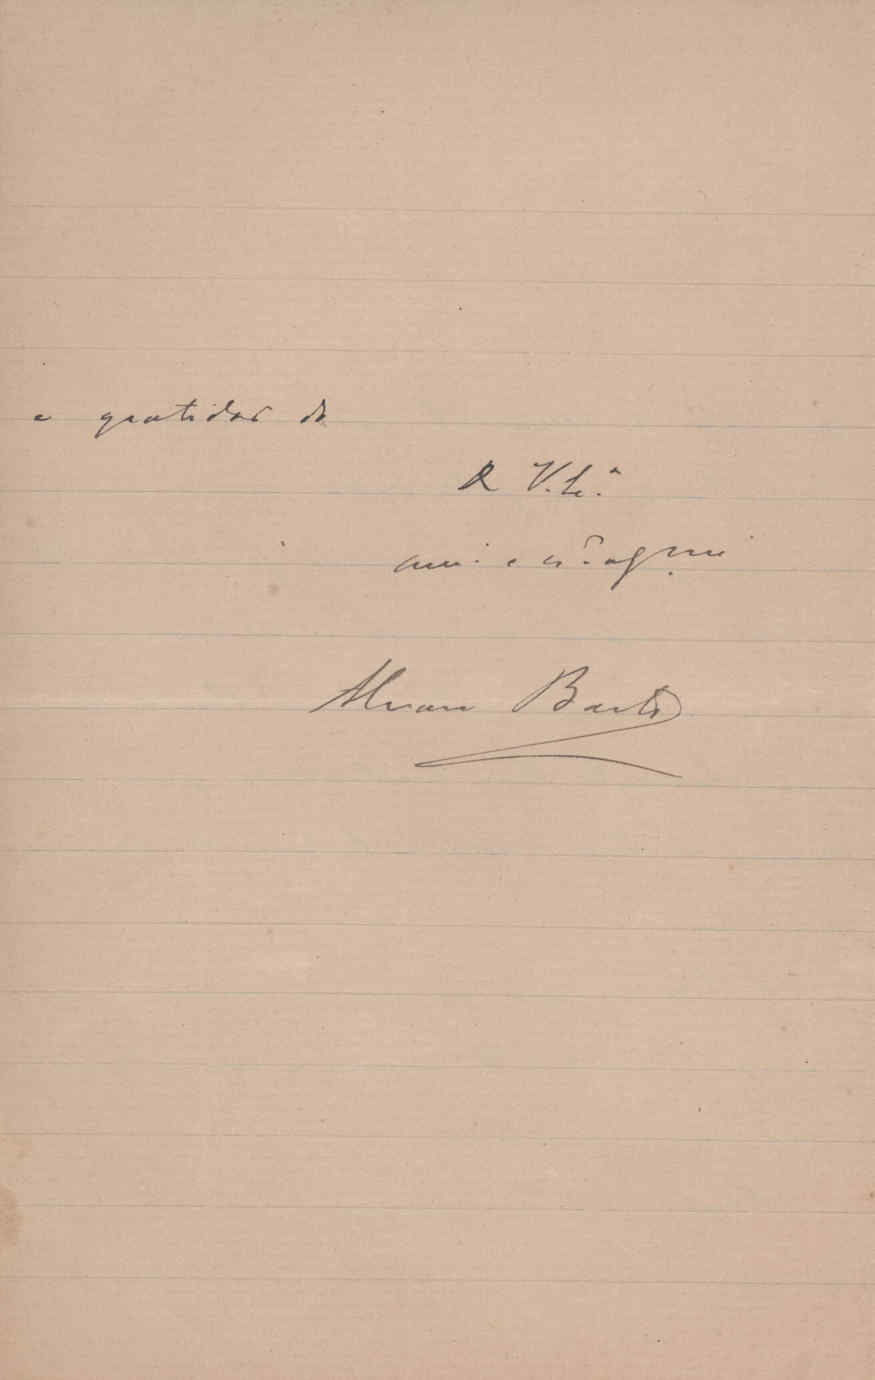 e gratidão do
De V. Ex.ª
am.º e cr.º obg.mo
Alvaro Basto